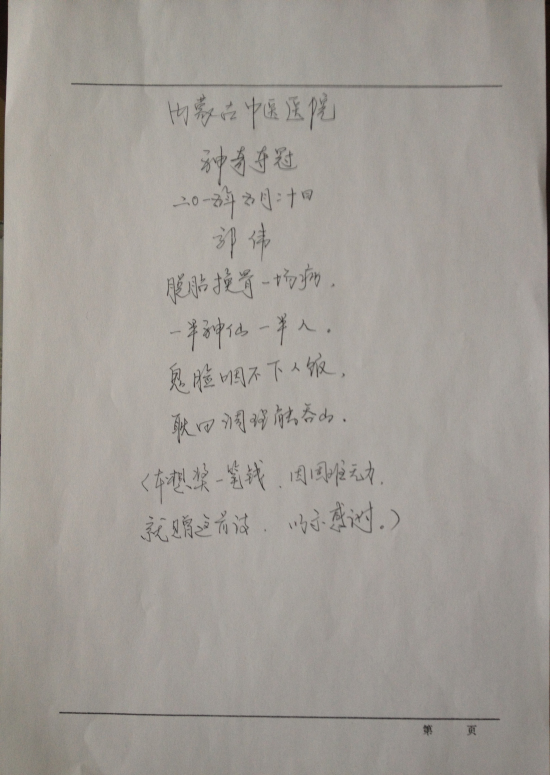 内蒙古中医医院
神奇夺冠
二〇一五年五月二十四
郭伟
脱胎换骨一场病,
一半神仙一半人。
鬼脸咽不下人饭,
耿四调理能吞山。
(本想奖一笔钱,因困难无力,
就赠这首诗,以示感谢。)
第 页